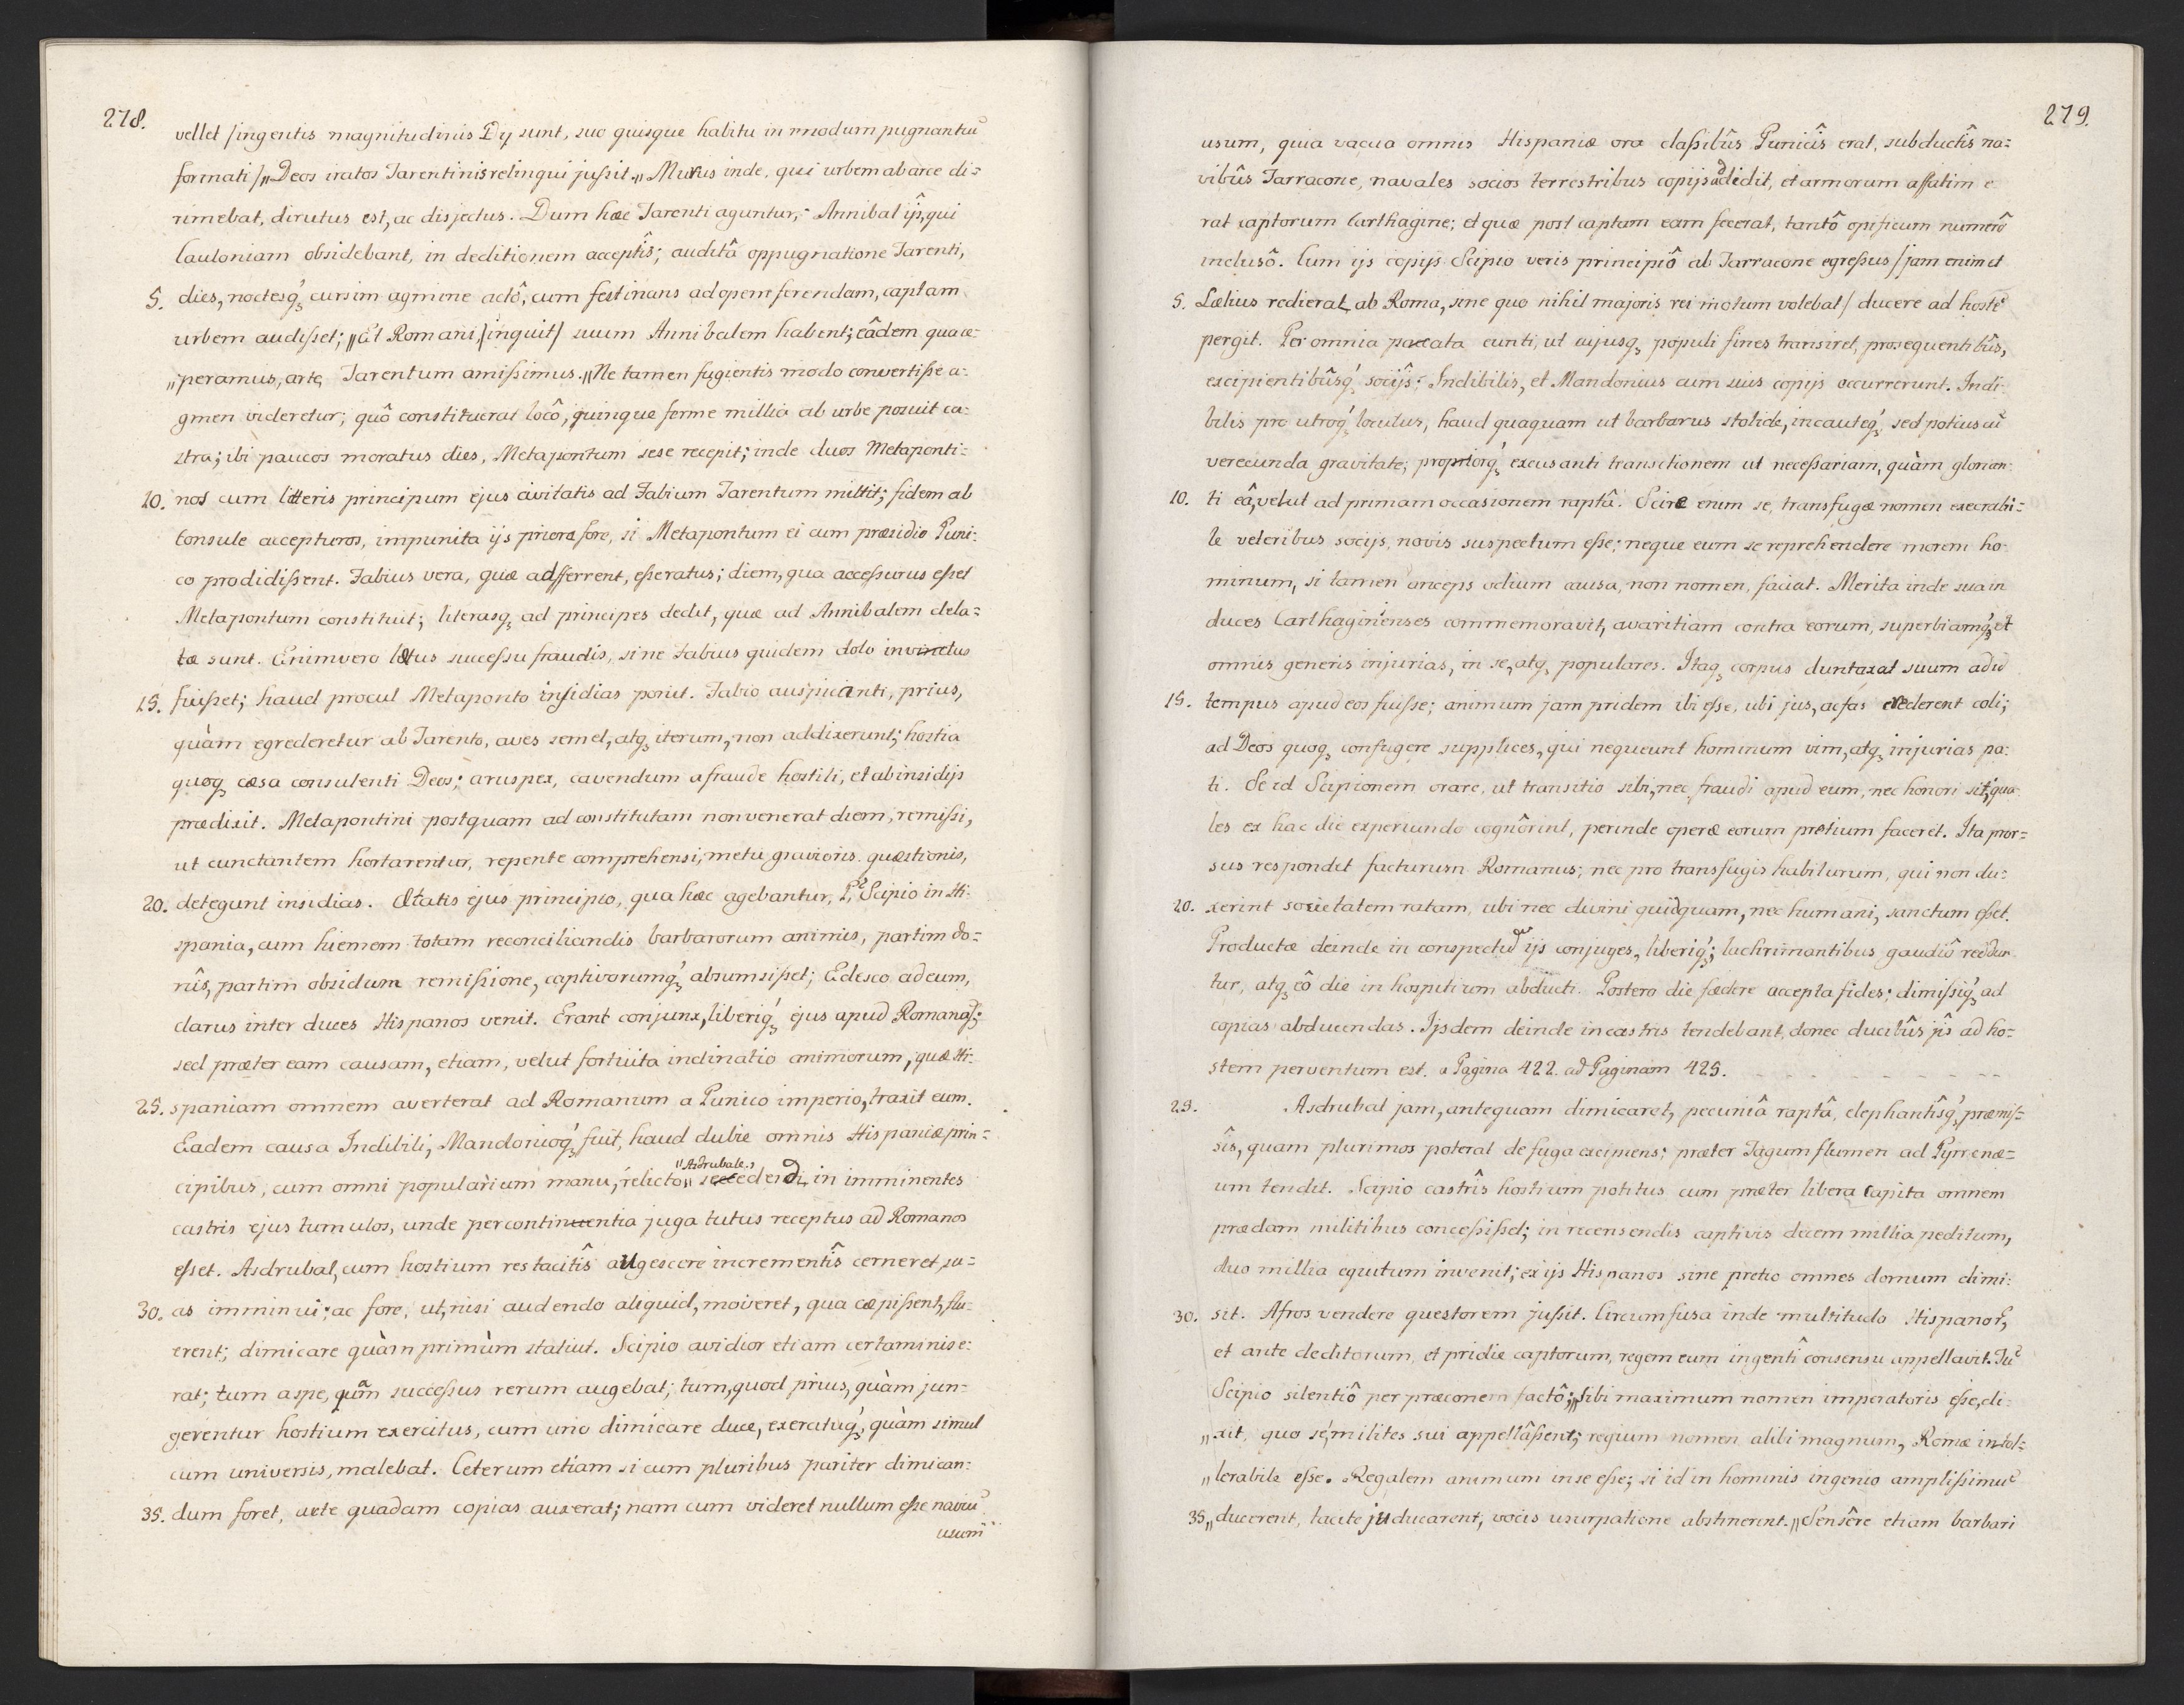 278.
vellet /ingentis magnitudinis Dÿ sunt, suo quisque habitu in modum pugnantiũ
formati/ „Deos iratos Tarentinis relinqui jußit.„ Murus inde, qui urbem ab arce di=
rimebat, dirutus est, ac disjectus. Dum hæc Tarenti aguntur, Annibal ijŝ, qui
Cauloniam obsidebant, in deditionem acceptîs; auditâ oppugnatione Tarenti,
5. dies, noctesq́ꝫ cursim agmine actô, cum festinans ad opem ferendam, captam
urbem audißet; „et Romani, /inquit/ suum Annibalem habent; eâdem qua ce=
„peramus, arte, Tarentum amißimus.„ Ne tamen fugientis modo convertiße a=
gmen videretur; quô constituerat locô, quinque ferme millia ab urbe posuit ca=
stra; ibi paucos moratus dies, Metapontum sese recepit; inde duos Metaponti=
10. nos cum litteris principum ejus civitatis ad Fabium Tarentum mittit; fidem ab
Consule accepturos, impunita ijs priora fore, si Metapontum ei cum præsidio Puni=
co prodidißent. Fabius vera, quæ adfferrent, eße ratus; diem, qua acceßurus eßet
Metapontum constituit; literasqꝫ ad principes dedit, quæ ad Annibalem dela=
tæ sunt. Enimvero lætus succeßu fraudis, si ne Fabius quidem dolo invinctus
15. fuißet; haud procul Metaponto insidias ponit. Fabio auspicanti, prius,
quàm egrederetur ab Tarento, aves semel, atqꝫ iterum, non addixerunt; hostia
quoqꝫ cæsa consulenti Deos; aruspex, cavendum a fraude hostili, et ab insidijs
prædixit. Metapontini postquam ad constitutam non venerat diem, remißi,
ut cunctantem hortarentur, repente comprehensi, metu gravioris quæstionis,
20. detegunt insidias. Ætatis ejus principio, qua hæc agebantur, P. Scipio in Hi-
spania, cum hiemem totam reconciliandis barbarorum animis, partim do=
nîs, partim obsidum remißione, captivorumq́ꝫ absumsißet; Edesco ad eum,
clarus inter duces Hispanos venit. Erant conjunx, liberiq́ꝫ ejus apud Romanos;
sed præter eam causam, etiam, velut fortuita inclinatio animorum, quæ Hi-
25. spaniam omnem averterat ad Romanum a Punico imperio, traxit eum.
Eadem causa Indibili, Mandonioq́ꝫ fuit, haud dubie omnis Hispaniæ prin=
cipibus, cum omni popularium manu, relicto „Asdrubale„ secedendi in imminentes
castris ejus tumulos, unde per continentia juga tutus receptus ad Romanos
eßet. Asdrubal, cum hostium res tacitîs augescere incrementîs cerneret, su=
30. as imminui; ac fore, ut, nisi audendo aliquid, moveret, qua cæpißent, flu-
erent; dimicare quàm primùm statuit. Scipio avidior etiam certaminis e=
rat; tum a spe, quam succeßus rerum augebat; tum, quod prius, quàm jun=
gerentur hostium exercitus, cum uno dimicare duce, exercituq́ꝫ, quàm simul
cum universis, malebat. Ceterum etiam si cum pluribus pariter dimican=
35. dum foret, arte quadam copias auxerat; nam cum videret nullum eße naviũ
usum
279.
usum, quia vacua omnis Hispaniæ ora claßibûs Punicîs erat, subductîs na=
vibûs Tarracone, navales socios terrestribus copijs addidit, et armorum affatim e-
rat captorum Carthagine; et quæ post captam eam fecerat, tantô opificum numerô
inclusô. Cum ijs copijs Scipio veris principiô ab Tarracone egreßus /jam enim et
5. Lælius redierat ab Roma, sine quo nihil majoris rei motum volebat/ ducere ad hostẽ
pergit. Per omnia pacata eunti, ut cujusqꝫ populi fines transiret, prosequentibûs,
excipientibûsq́ꝫ socijŝ; Indibilis, et Mandonius cum suis copijs occurrerunt. Indi-
bilis pro utroq́ꝫ locutus, haud quaquam ut barbarus stolide, incauteq́ꝫ, sed potius cũ
verecunda gravitate; propriorq́ꝫ excusanti transitionem ut neceßariam, quàm glorian-
10. ti eâ, velut ad primam occasionem raptâ. Scire enim se, transfugæ nomen execrabi=
le veteribus socijs, novis suspectum eße; neque eum se reprehendere morem ho-
minum, si tamen anceps odium causa, non nomen, faciat. Merita inde sua in
duces Carthaginienses commemoravit, avaritiam contra eorum, superbiamq́ꝫ, et
omnis generis injurias, in se, atqꝫ populares. Itaqꝫ corpus duntaxat suum ad id
15. tempus apud eos fuiße; animum jam pridem ibi eße, ubi jus, ac fas crederent coli;
ad Deos quoqꝫ confugere supplices, qui nequeunt hominum vim, atqꝫ injurias pa-
ti. Se id Scipionem orare, ut transitio sibi, nec fraudi apud eum, nec honori sit; qua-
les ex hac die experiundo cognôrint, perinde operæ eorum pretium faceret. Ita pror=
sus respondet facturum Romanus; nec pro transfugis habiturum, qui non du-
20. xerint societatem ratam, ubi nec divini quidquam, nec humani, sanctum eßet.
Productæ deinde in conspectum ijs conjuges, liberiq́ꝫ; lachrimantibus gaudiô reddun-
tur, atqꝫ eô die in hospitium abducti. Postero die fœdere accepta fides; dimißiq́ꝫ ad
copias abducendas. Ijsdem deinde in castris tendebant, donec ducibûs ijŝ ad ho=
stem perventum est. a Pagina 422. ad Paginam 425. - - - - - - - - -
25. Asdrubal jam, antequam dimicaret, pecuniâ raptâ, elephantîsq́ꝫ præmiß-
sîs, quam plurimos poterat de fuga excipiens; præter Tagum flumen ad Pyrenæ=
um tendit. Scipio castrîs hostium potitus cum præter libera capita omnem
prædam militibus conceßißet; in recensendis captivis decem millia peditum,
duo millia equitum invenit; ex ijs Hispanos sine pretio omnes domum dimi-
30. sit. Afros vendere questorem jußit. Circumfusa inde multitudo Hispanoꝝ,
et ante deditorum, et pridie captorum, regem eum ingentî consensu appellavit. Tũ
Scipio silentiô per præconem factô; „sibi maximum nomen imperatoris eße, di-
„xit, quo sé, milites sui appellâßent; regium nomen alibi magnum, Romæ intol-
„lerabile eße. Regalem animum in se eße; si id in hominis ingenio amplißimũ
35. „ducerent, tacite juducarent, vocis usurpatione abstinerent.„ Sensêre etiam barbari